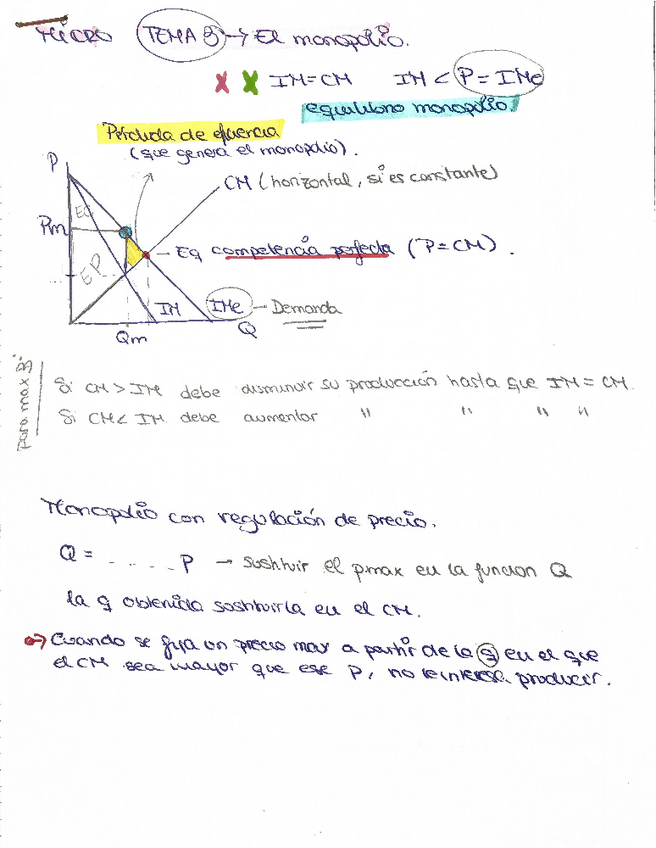 MICRO TEMA 3 → El monopolio.
X X IM=CM IM < P = IMe
equilibrio monopolio.
Pérdida de eficiencia
(que genera el monopolio).
P
CM (horizontal, si es constante)
EC
Pm
Eq competencia perfecta (P=CM).
EP
IM IMe → Demanda
Qm Q
para max B:
Si CM > IM debe disminuir su producción hasta que IM = CM.
Si CM < IM debe aumentar " " " "
Monopolio con regulación de precio.
Q = . . . . . P → sustituir el pmax en la funcion Q
la q obtenida sustituirla en el CM.
→ Cuando se fija un precio max a partir de la q en el que
el CM sea mayor que ese P, no le interesa producir.